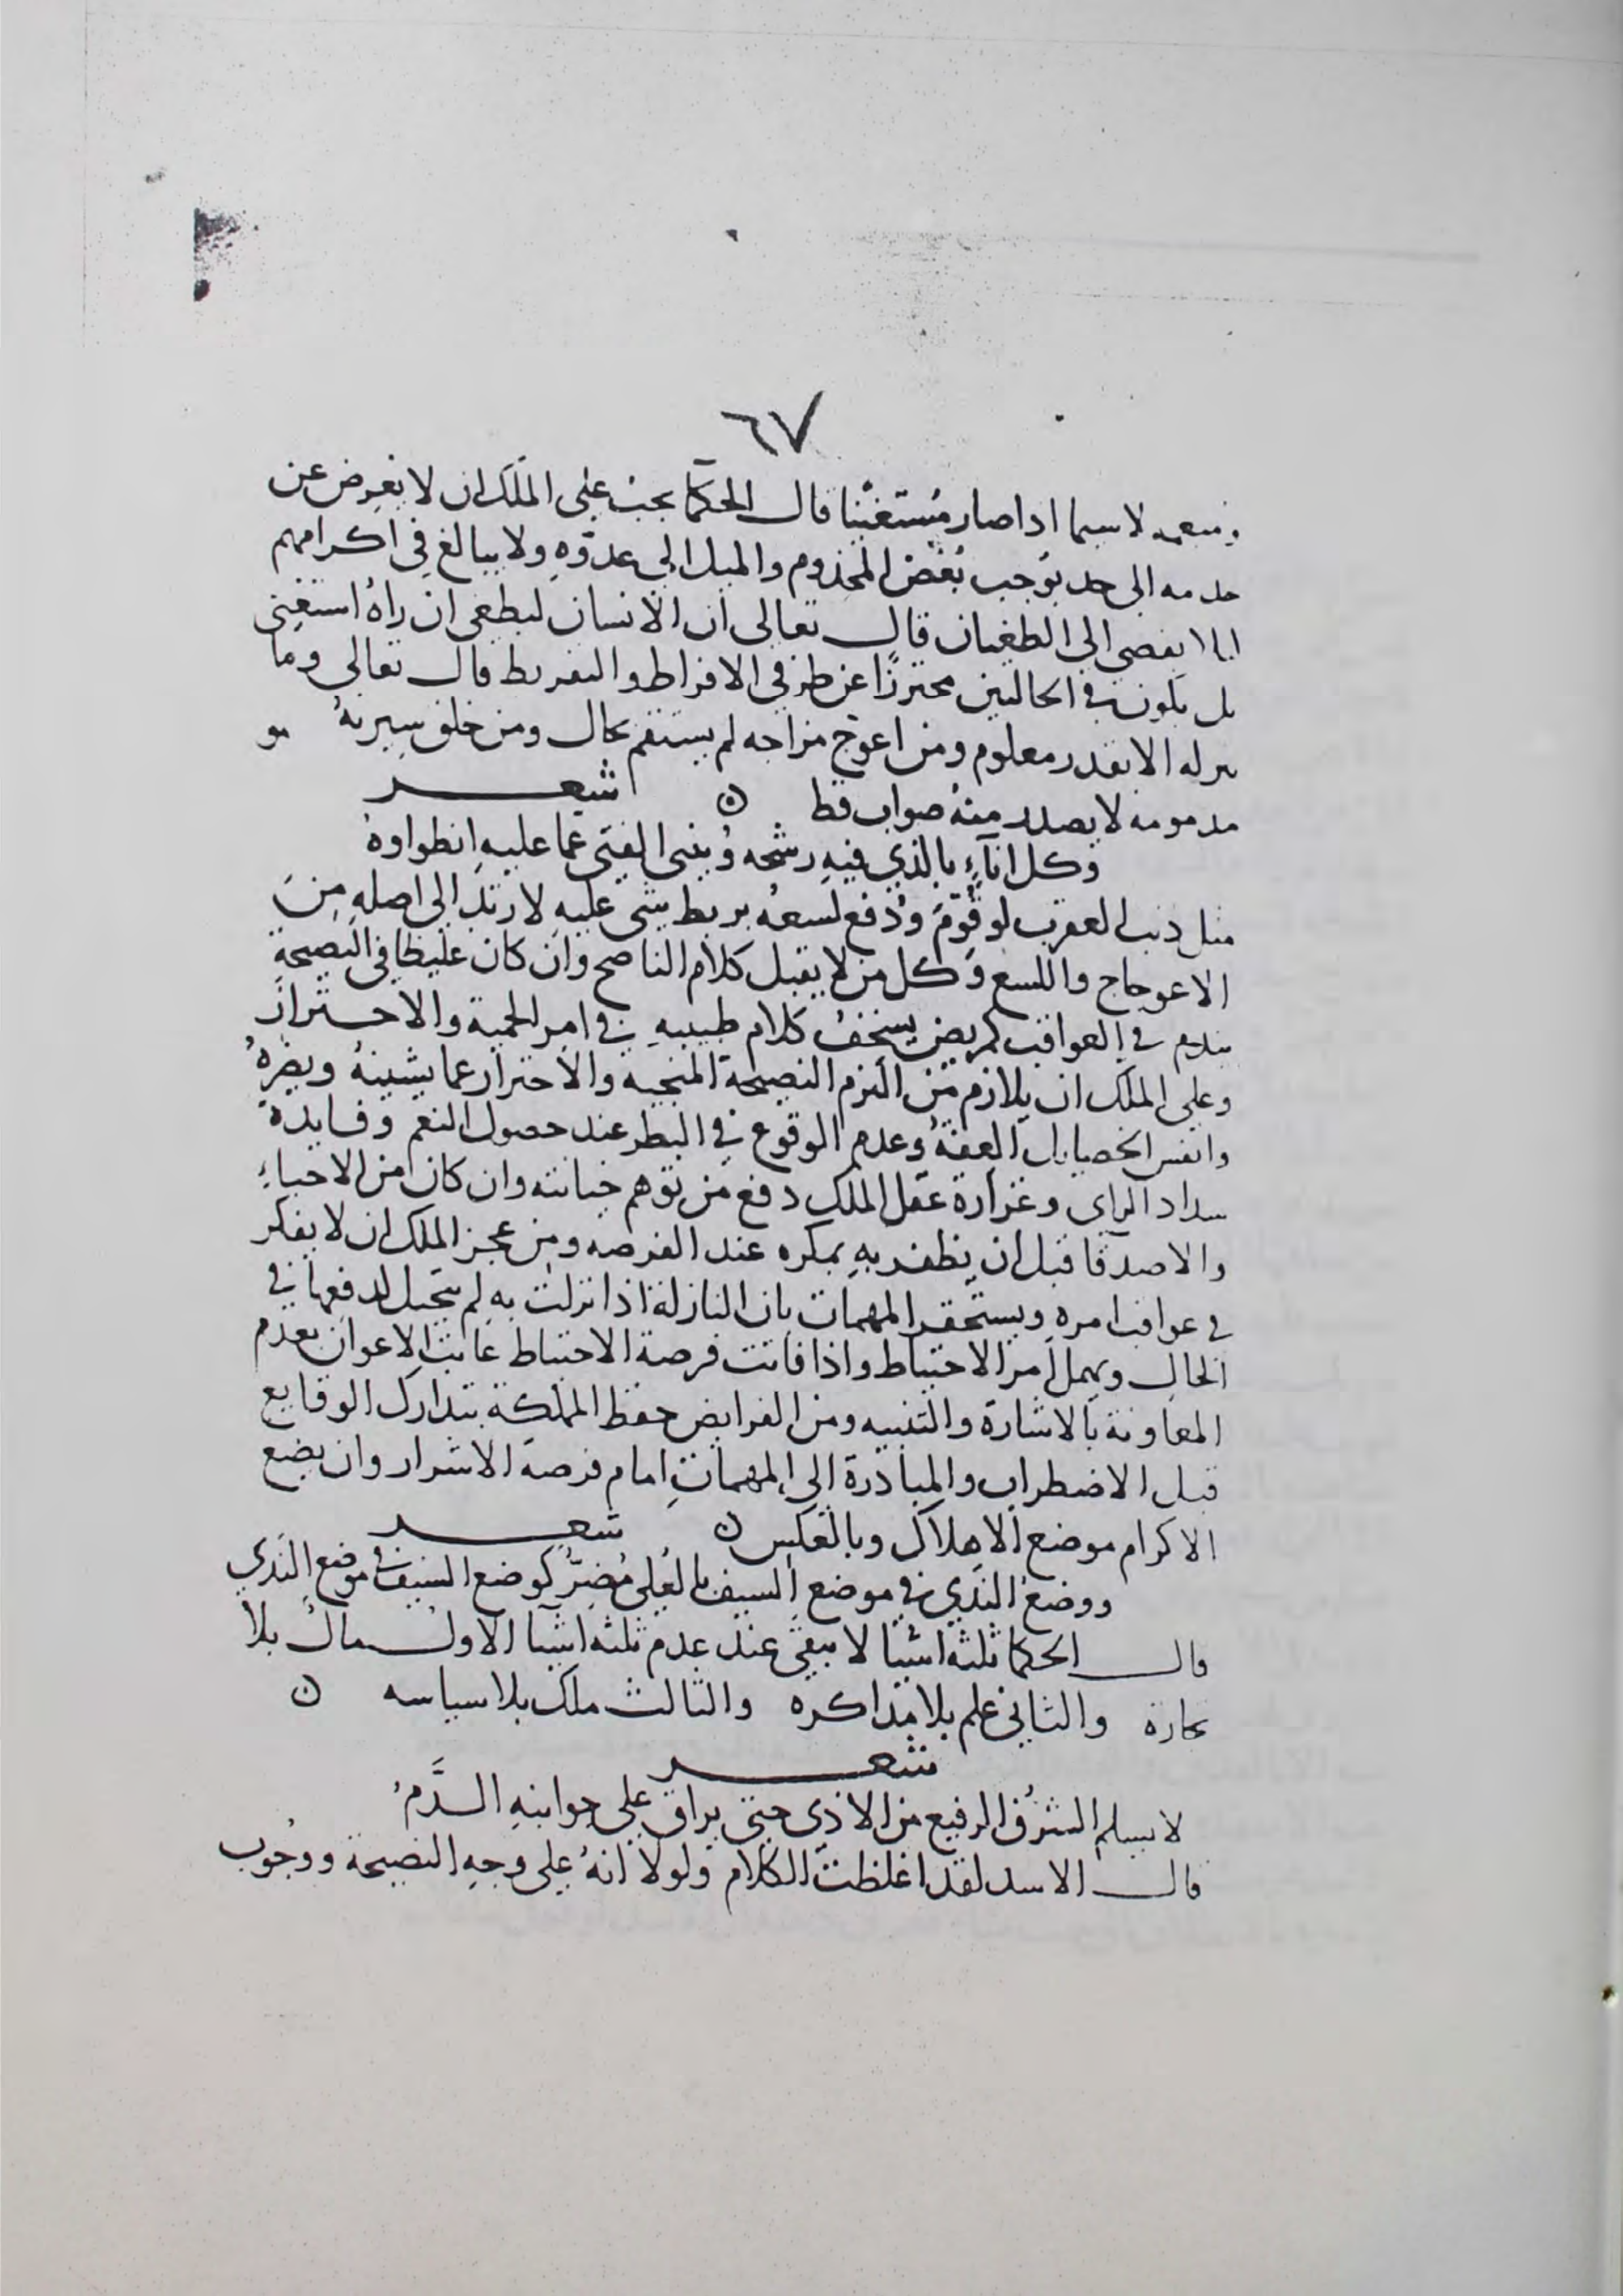 ٦٧
ومنعمه لاسيما اذا صار مُستغنيا قال الحكما يجب على الملك ان لا يعرض عن
خدمه الى حد يوجب بُغض المخدوم والميل الى عدوّهِ ولا يبالغ في اكرامهم
ليلا يفضي الى الطغيان قال تعالى ان الانسان ليطغى ان راهُ استغنى
بل يكون في الحالتين محترزًا عن طرفي الافراط والتفريط قال تعالى وما
ننزله الا بقدر معلوم ومن اعوجّ مزاجه لم يستقم بحال ومن خلق سيرتهُ
مذمومه لا يصدر منهُ صواب قط ن شعر
وكل اناءٍ بالذي فيهِ رشحه وُينبي الفتى عما عليهِ انطواوهُ
مثل ذنب العقرب لو قُوّمَ وَدُفع لسعهُ بربط شي عليهِ لارتد الى اصلهِ مِنَ
الاعوجاج واللسع وَكل من لا يقبل كلام الناصح وان كان غليظا في النصيحةِ
يندم في العواقب كمريض يستخف كلام طبيبهِ في امر الحمية والاحتراز
وعلى الملك ان يلازم من التزم النصيحة المنجيه والاحتراز عما يشينهُ ويضرهُ
وانفس الخصايل العفةُ وعدم الوقوع في البطر عند حصول النعم وفايدة
سداد الراي وغزارة عقل الملك دفع من توهم خيانته وان كان من الاحباءِ
والاصدقا قبل ان يظفر بهِ بمكره عند الفرصه ومن عجز الملك ان لا يفكر
في عواقب امره ويستحقر المهمات بان النازلة اذا نزلت بهِ لم يتحيل لدفعها في
الحال ويهمل امر الاحتياط واذا فاتت فرصة الاحتياط عاتب الاعوان بعدم
المعاونة بالاشارة والتنبيه ومن الفرايض حفظ المملكة بتدارك الوقايع
قبل الاضطراب والمبادرة الى المهماتِ امام فرصة الاشرار وان يضع
الاكرام موضع الاهلاك وبالعكس ن شعر
ووضعُ الندي في موضع السيف بالعُلى مُضِرٌّ كوضع السيف في موضع الندي
قال الحكما ثلثة اشيا لا تبقى عند عدم ثلثه اشيآ الاول مال بلا
تجارة والثاني علم بلا مذاكره والثالث ملك بلا سياسه ن
شعر
لا يسلم الشرف الرفيع من الاذى حتى يراق على جوانبهِ الدَّمُ
قال الاسد لقد اغلظت الكلام ولولا انهُ على وجهِ النصيحة ووجوب